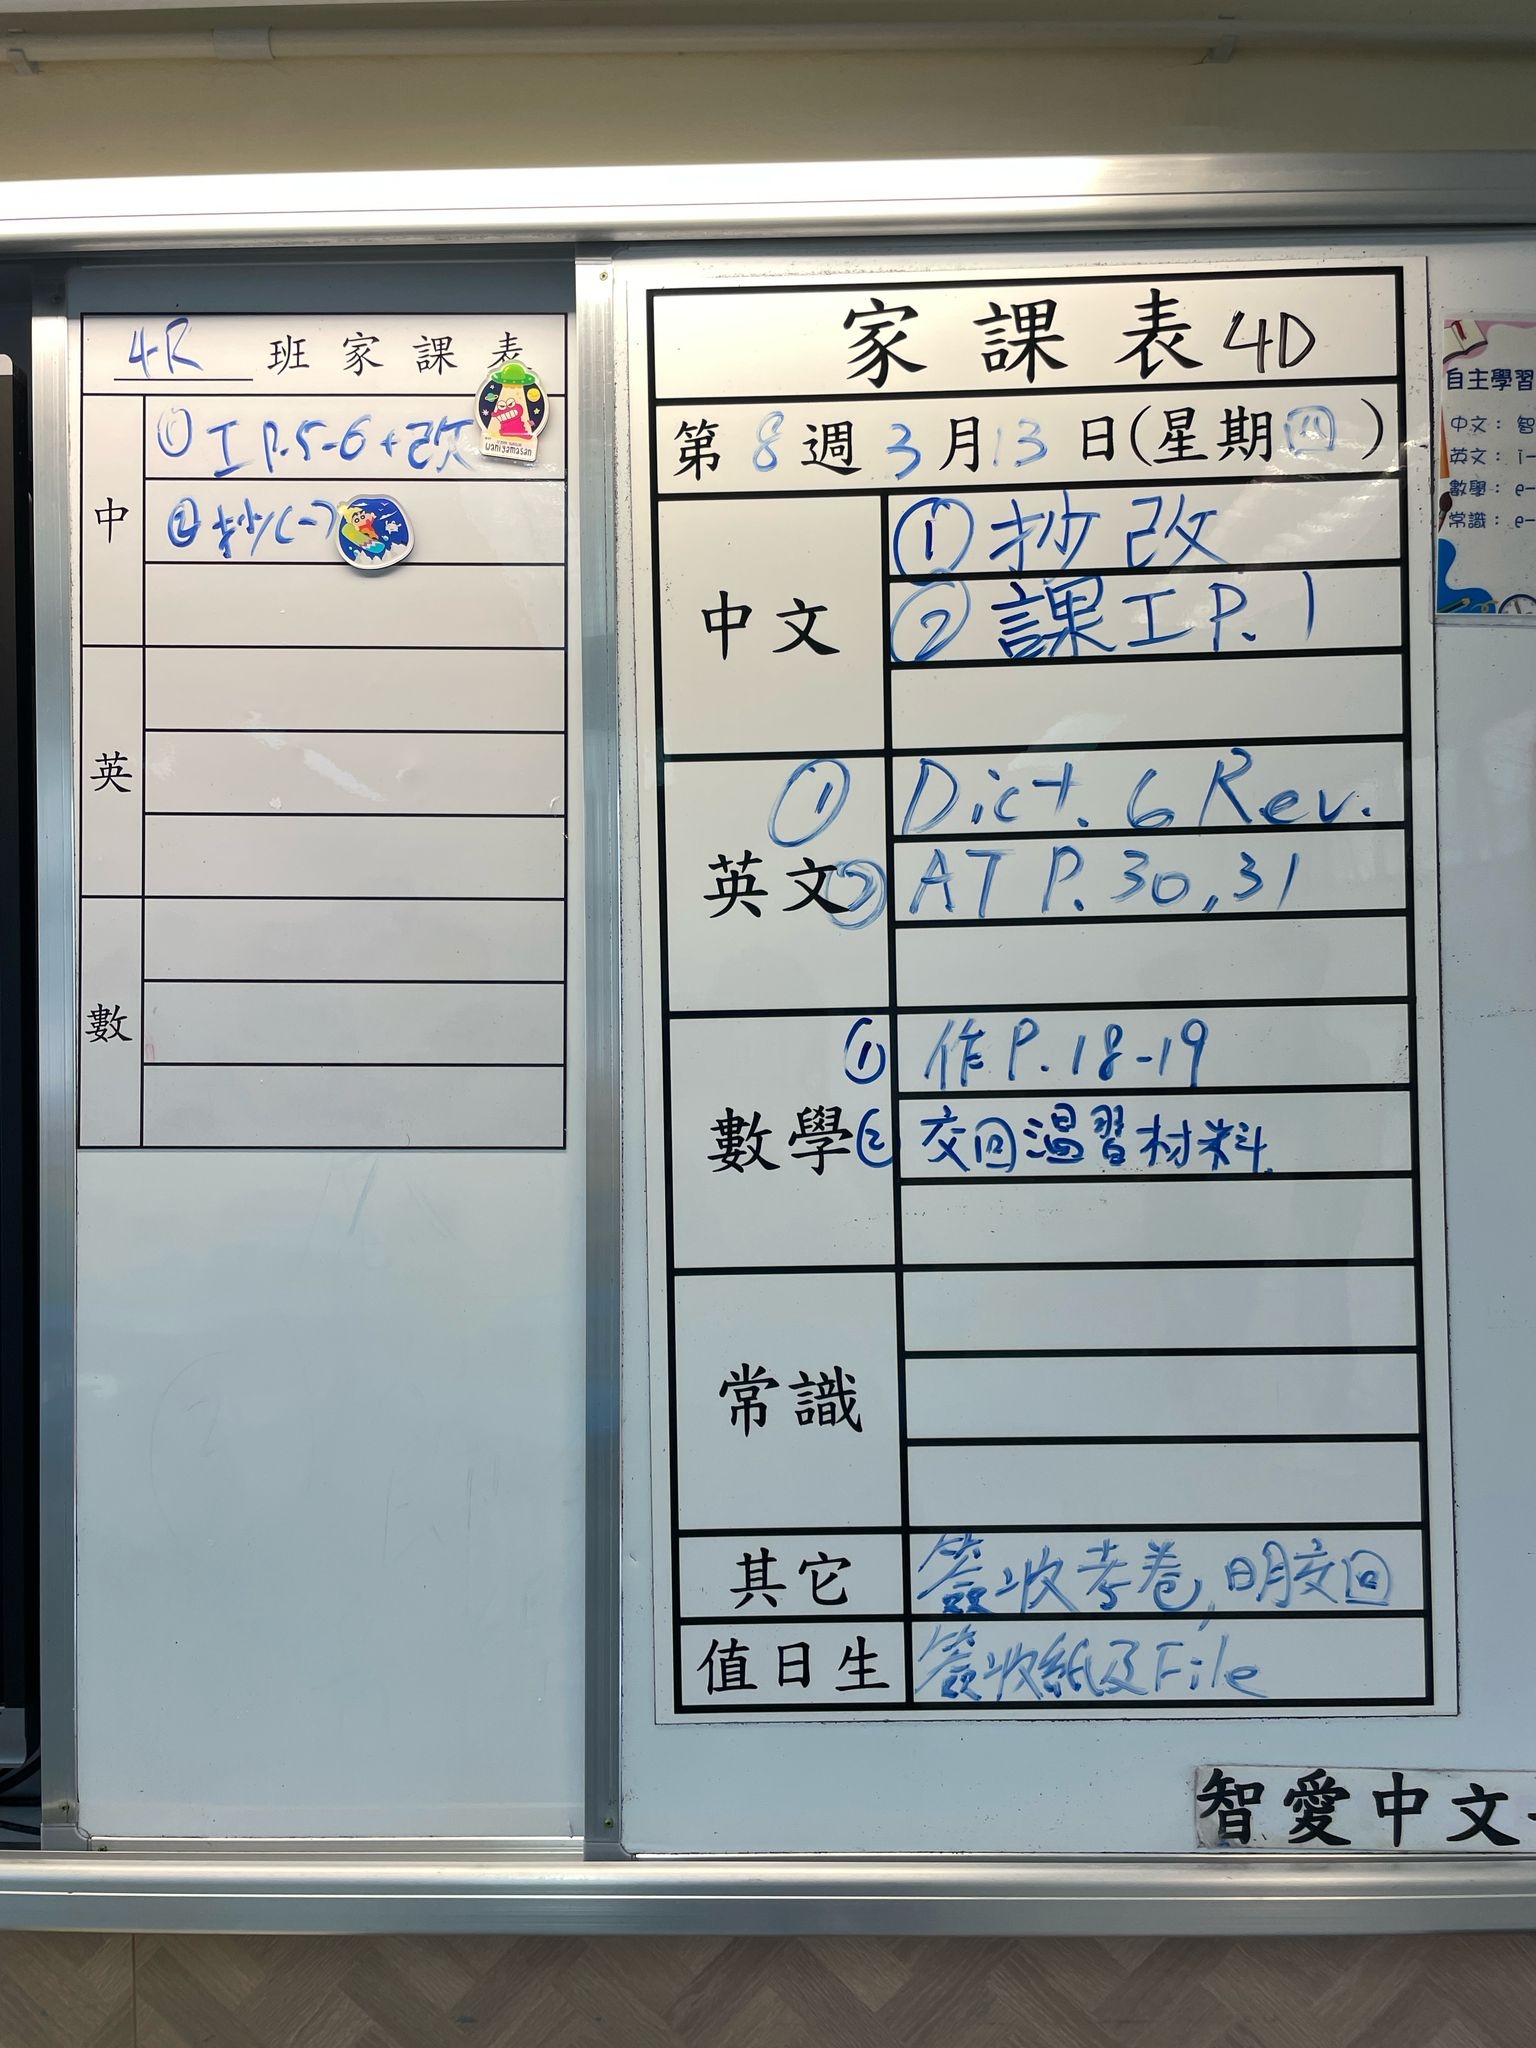 4R 班家課表
中
① 工 P.5-6 + 改
② 抄(一)
英
數
waniyamasan
家課表 4D
第 8 週 3 月 13 日(星期四)
中文
① 抄改
② 課工 P.1
英文
① Dict. 6 Rev.
② AT P.30,31
數學
① 作 P.18-19
② 交回温習材料
常識
其它
簽收考卷,明交回
值日生
簽收紙及File
自主學習
中文：智
英文：i-
數學：e-
常識：e-
智愛中文